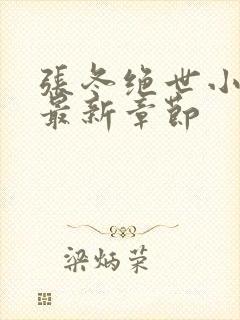 張冬绝世小
最新章節
梁炳荣